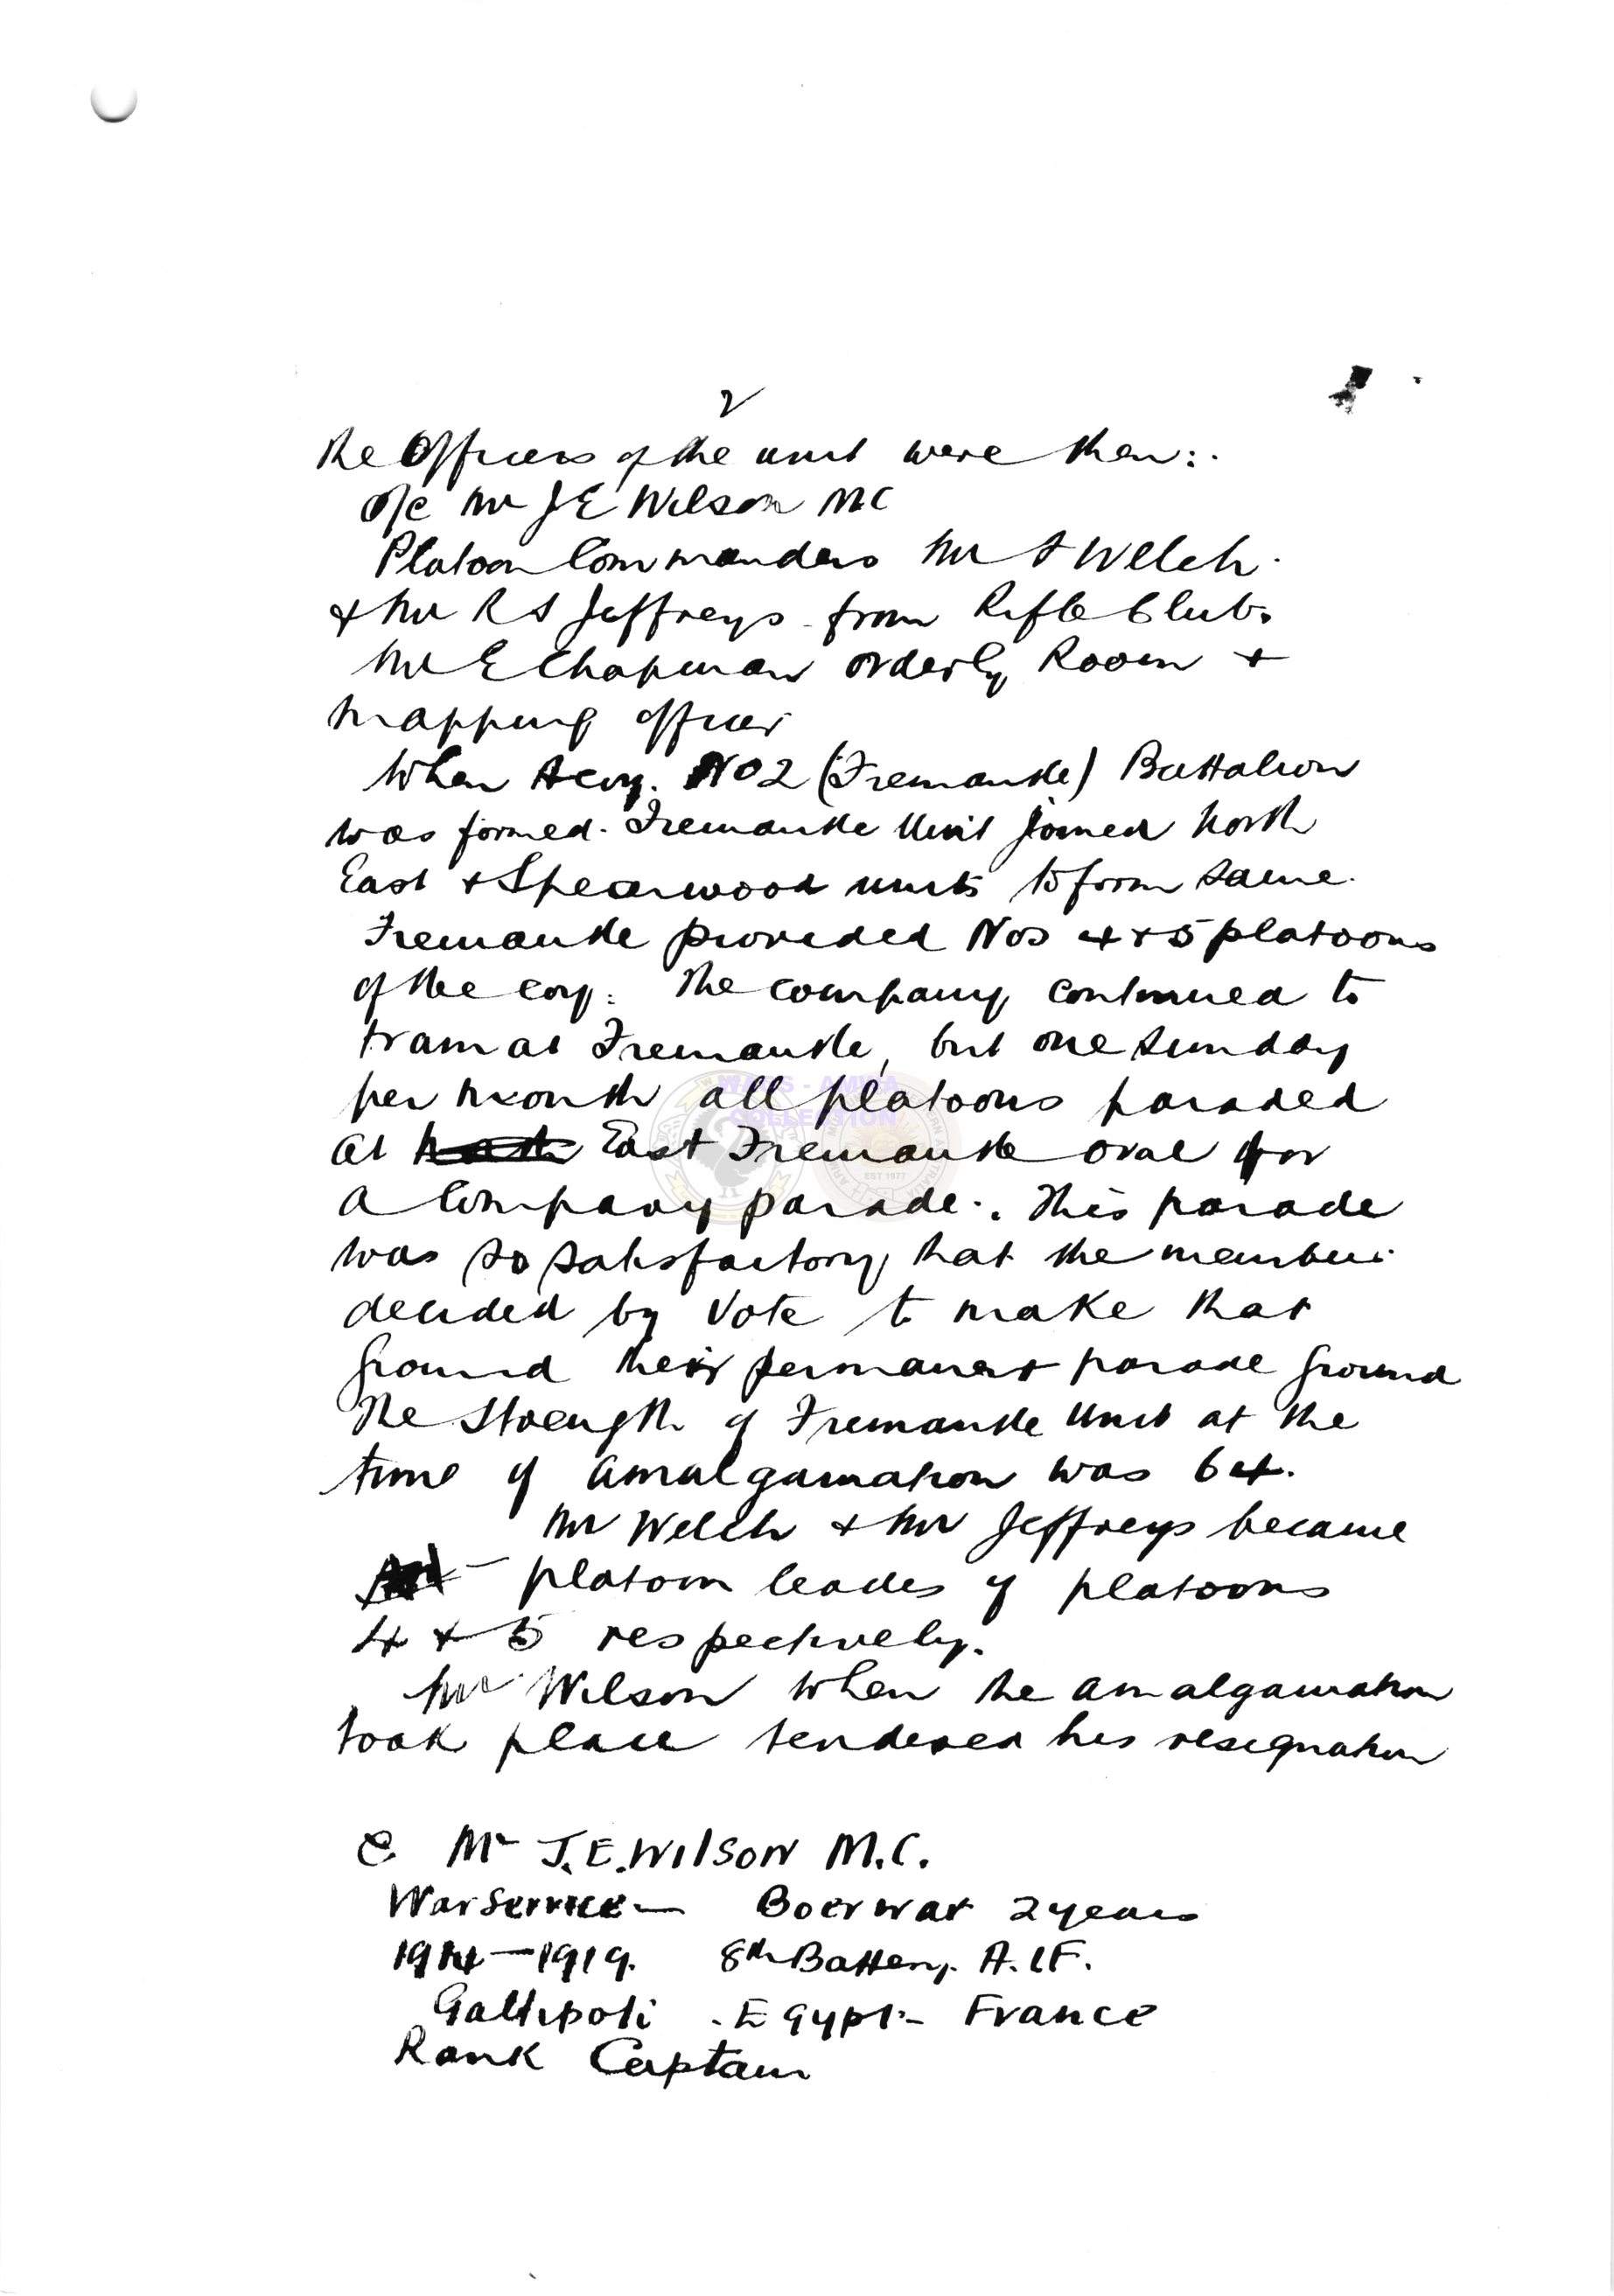 2
The Officers of the unit were then:-
O/C Mr J E Wilson MC
Platoon Commanders Mr S Welch.
& Mr R S Jeffreys - from Rifle Club.
Mr E Chapman Orderly Room &
mapping officer
When A coy. No 2 (Fremantle) Battalion
was formed. Fremantle Unit joined North
East & Spearwood units to form same.
Fremantle provided Nos 4 & 5 platoons
of the coy. The company continued to
train at Fremantle, but one Sunday
per month all platoons paraded
WAHS - AMWA
COLLECTION
at North East Fremantle oval for
a Company parade. This parade
was so satisfactory that the members
decided by Vote to make that
ground their permanent parade ground
The Strength of Fremantle Unit at the
time of amalgamation was 64.
Mr Welch & Mr Jeffreys became
platoon leaders of platoons
4 & 5 respectively.
Mr Wilson when the amalgamation
took place tendered his resignation
C. Mr J.E. Wilson M.C.
War Service - Boer war 2 years
1914-1919. 8th Battery. A.I.F.
Gallipoli - Egypt - France
Rank Captain